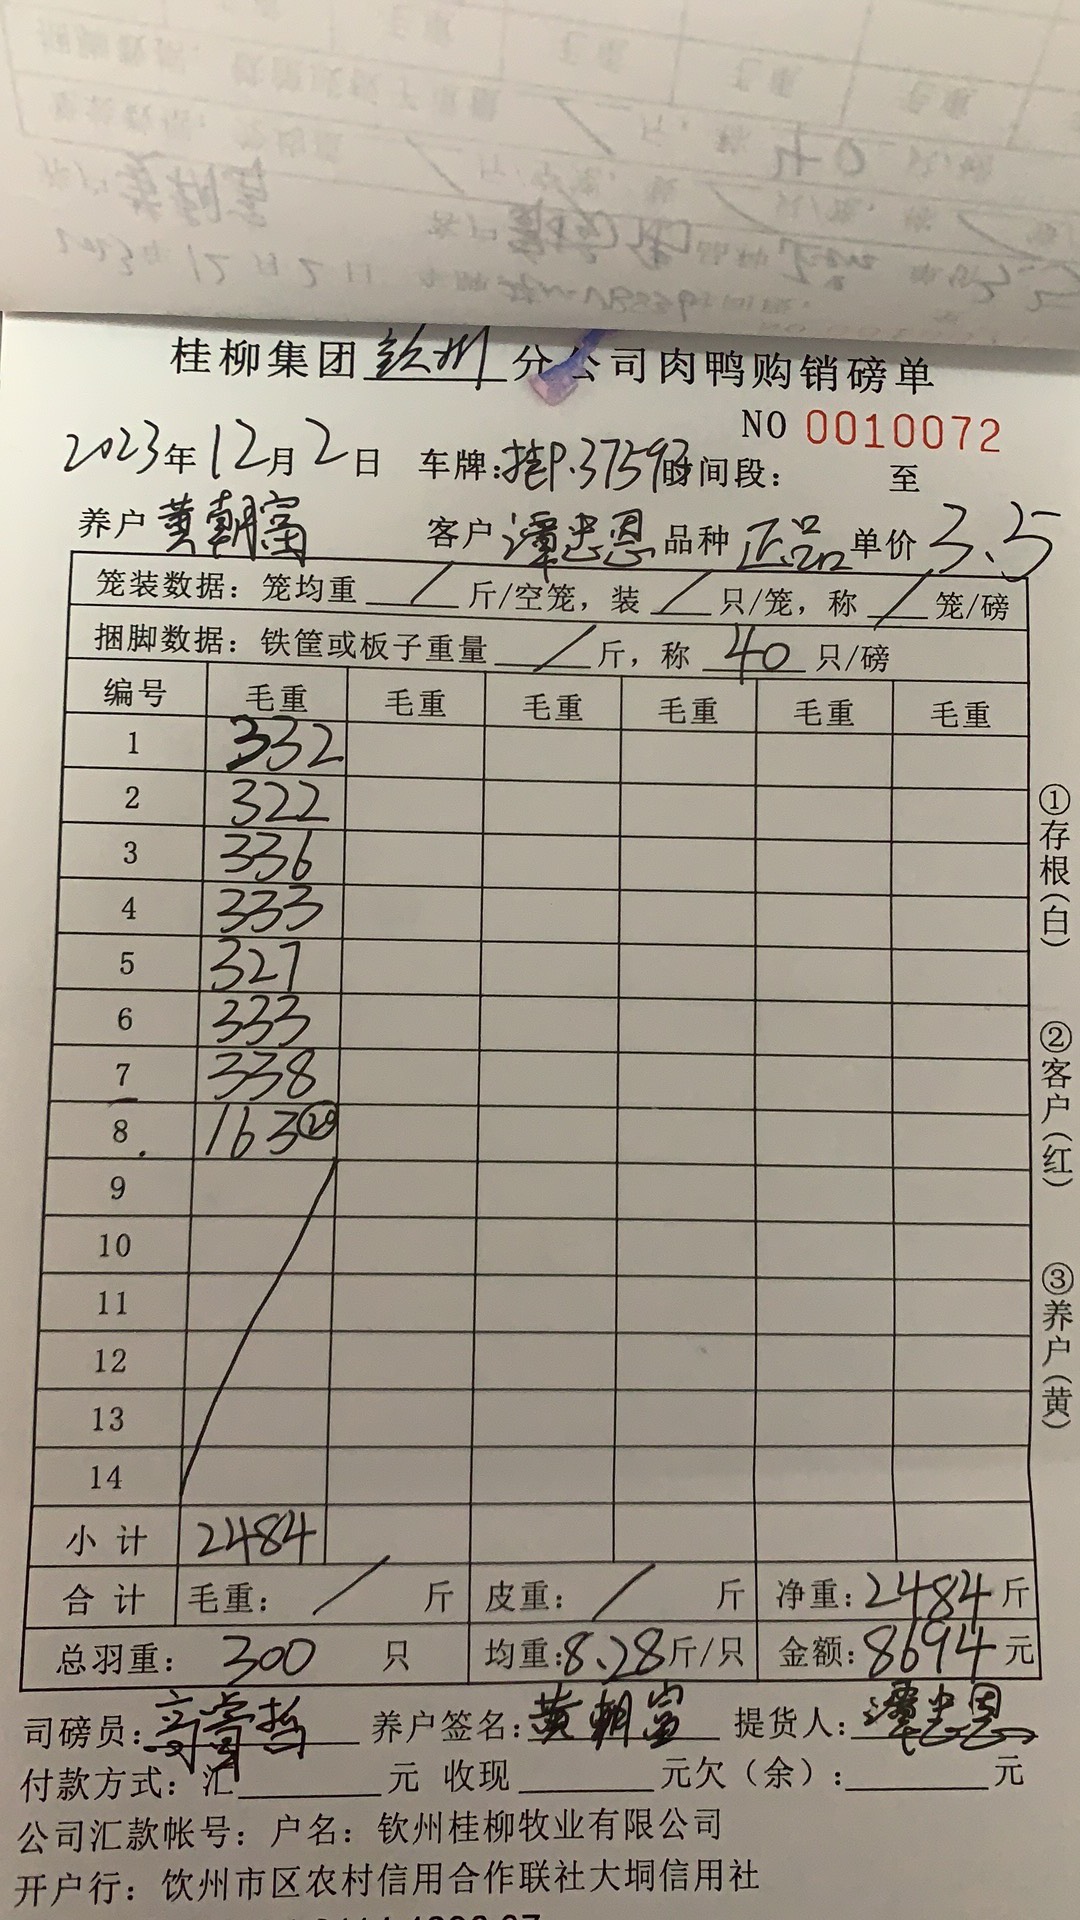 桂柳集团钦州分公司肉鸭购销磅单
NO 0010072
2023年12月2日 车牌:桂P.37593时间段: 至
养户黄朝富 客户谭忠恩 品种正品 单价3.5
笼装数据: 笼均重 / 斤/空笼, 装 / 只/笼, 称 / 笼/磅
捆脚数据: 铁筐或板子重量 / 斤, 称 40 只/磅
编号 毛重 毛重 毛重 毛重 毛重 毛重
1 332
2 322
3 336
4 333
5 327
6 333
7 338
8 163 ⑳
9
10
11
12
13
14
小计 2484
合计 毛重: / 斤 皮重: / 斤 净重:2484斤
总羽重: 300 只 均重:8.28斤/只 金额:8694元
司磅员: 养户签名:黄朝富 提货人:谭忠恩
付款方式: 汇 元 收现 元欠(余): 元
公司汇款帐号: 户名: 钦州桂柳牧业有限公司
开户行: 饮州市区农村信用合作联社大垌信用社
①存根(白)
②客户(红)
③养户(黄)